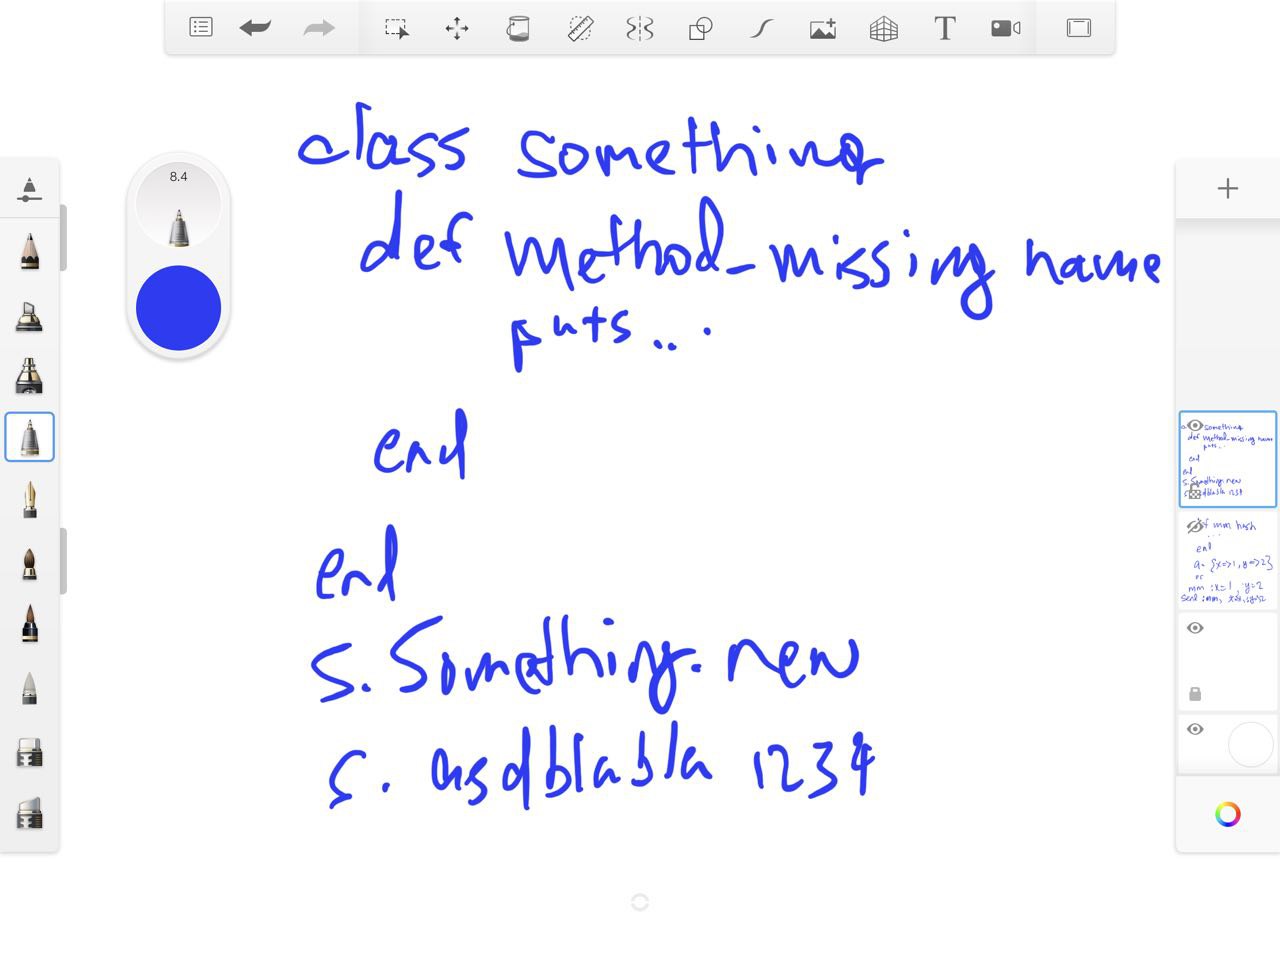 8.4
T
class something
def method_missing name
puts...
end
end
s. Something.new
s. asdblabla 1234
something
def method-missing name
puts...
end
end
s. Something new
asdblabla 1234
f mm hash
...
end
a= {x=>1, y=>2}
or
mm :x=1, y=2